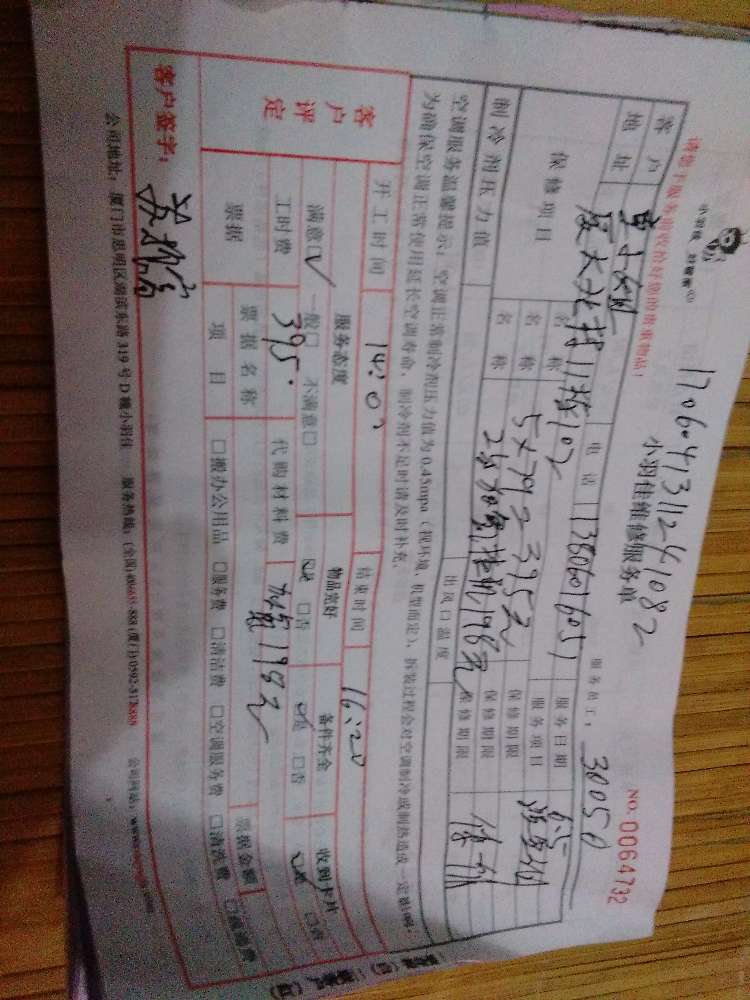 小羽佳, 好管家
1706041311241082
NO. 0064732
小羽佳维修服务单
服务员工: 30050
请您于服务前收拾好您的贵重物品!
客户 小姐 电话 服务日期 6.5
地址 厦大北村11栋102 服务项目
保修项目 名称 5×79元=395元 保修期限
名称 保修期限
名称 198元 保修期限
制冷剂压力值 出风口温度
空调服务温馨提示: 空调正常制冷剂压力值为0.45mpa (视环境、机型而定), 拆装过程会对空调制冷或制热造成一定影响,
为确保空调正常使用延长空调寿命, 制冷剂不足时请及时补充。
开工时间 14:02 结束时间 16:20
客户评定 服务态度 物品完好 备件齐全 收到卡片
满意☑ 一般□ 不满意□ ☑是 □否 ☑是 □否 ☑是 □否
工时费 395. 代购材料费 加氟198元
票据 票据名称 票据金额
项目 □搬办公用品 □服务费 □清洁费 □空调服务费 □清洗费
客户签字:
公司地址: 厦门市思明区湖滨东路319号D幢小羽佳 服务热线: 公司网站: